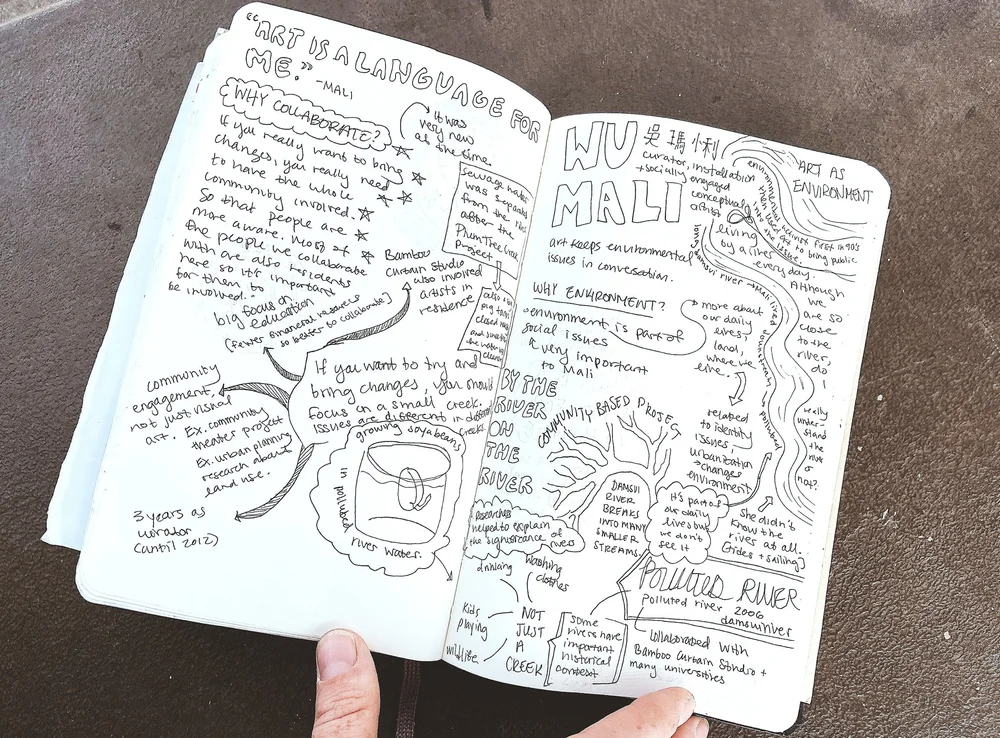 "ART IS A LANGUAGE FOR
ME."
-MALI
WHY COLLABORATE?
It was
very new
at the time.
If you really want to bring
changes, you really need
to have the whole
community involved.
So that people are
more aware. Most of
the people we collaborate
with are also residents
here so it's important
for them to
be involved."
Sewage water
was separated
from the river
after the
Plum Tree Creek
Project
big focus on
education
(fewer financial resources
so better to collaborate)
Bamboo
Curtain Studio
also involved
artists in
residence
also
pig farm
closed
and
the
cleaner
community
engagement,
not just visual
art. Ex. community
theater project
Ex. urban planning
research about
land use.
3 years as
curator
(until 2012)
If you want to try and
bring changes, you should
focus on a small creek.
Issues are different in different
creeks.
growing soya beans
in polluted
river water.
WU
MALI
吳瑪悧
curator, installation
+ socially engaged
conceptual
artist
ART AS
ENVIRONMENT
environmental activist first in 90's
then used art to bring public
into the issue.
living
by a river
everyday.
Although
we
are so
close
to the
river,
do I
really
under-
stand
the
river or
not?
art keeps environmental
issues in conversation.
long damsui river → Mali lived downstream → polluted
WHY ENVIRONMENT?
environment is part of
social issues
& very important
to Mali
more about
our daily
lives,
land,
where we
live.
related
to identity
issues,
urbanization
→ changes
environment
BY THE
RIVER
ON
THE
RIVER
COMMUNITY BASED PROJECT
DAMSUI
RIVER
BREAKS
INTO MANY
SMALLER
STREAMS.
It's part of
our daily
lives but
we don't
see it
She didn't
know the
river at all.
(tides + sailing)
Researchers
helped to explain
the significance of
rivers
drinking
washing
clothes
kids
playing
wildlife
NOT
JUST
A
CREEK
some
rivers have
important
historical
context
POLLUTED RIVER
polluted river 2006
damsuiriver
Collaborated with
Bamboo Curtain Studio +
many universities